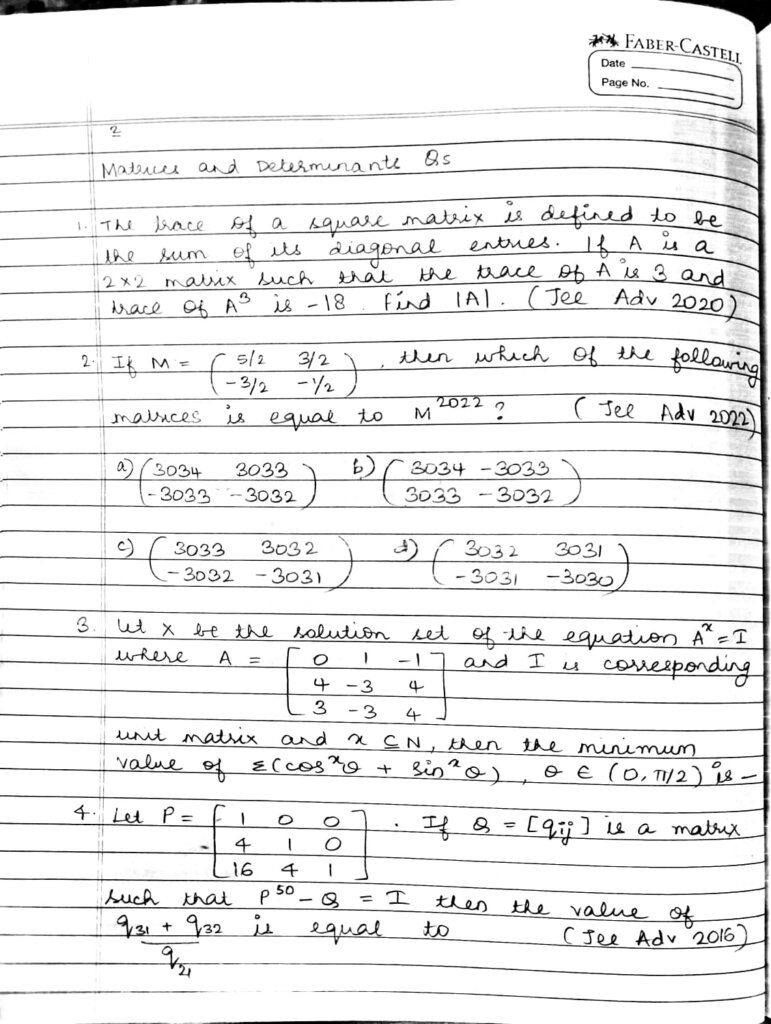 FABER-CASTELL
Date
Page No.
2
Matrices and Determinants Qs
1. The trace of a square matrix is defined to be
the sum of its diagonal entries. If A is a
2×2 matrix such that the trace of A is 3 and
trace of A³ is -18. Find |A|. (Jee Adv 2020)
2. If M = ( 5/2 3/2 ) , then which of the following
( -3/2 -1/2 )
matrices is equal to M²⁰²² ? ( Jee Adv 2022)
a) ( 3034 3033 ) b) ( 3034 -3033 )
( -3033 -3032 ) ( 3033 -3032 )
c) ( 3033 3032 ) d) ( 3032 3031 )
( -3032 -3031 ) ( -3031 -3030 )
3. Let X be the solution set of the equation Aˣ = I
where A = [ 0 1 -1 ] and I is corresponding
[ 4 -3 4 ]
[ 3 -3 4 ]
unit matrix and x ⊆ N, then the minimum
value of Σ(cosˣθ + sinˣθ), θ ∈ (0, π/2) is -
4. Let P = [ 1 0 0 ] . If Q = [qij] is a matrix
[ 4 1 0 ]
[ 16 4 1 ]
such that P⁵⁰ - Q = I then the value of
q₃₁ + q₃₂ is equal to (Jee Adv 2016)
q₂₁